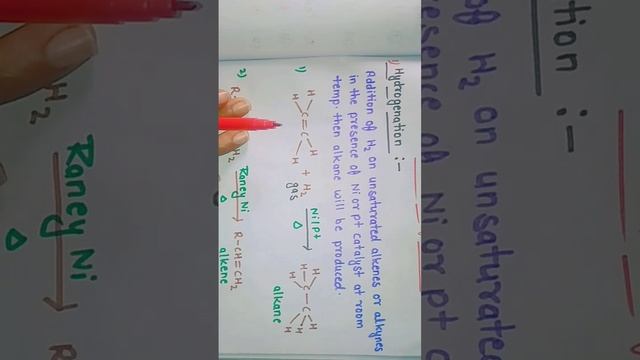 1) Hydrogenation :-
Addition of H2 on unsaturated alkenes or alkynes
in the presence of Ni or pt catalyst at room
temp. then alkane will be produced.
1) H H C=C H H + H2 gas Ni/Pt Δ H H H C-C H H H
alkane
2) R- H2 Raney Ni Δ R-CH=CH2
alkene
tion :-
of H2 on unsaturate
esence of Ni or pt c
H2 Raney Ni Δ R